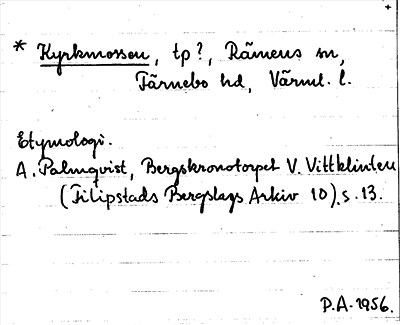 * Kyrkmossen, tp?, Rämens sn,
Färnebo hd, Värml. l.
Etymologi.
A. Palmqvist, Bergskronotorpet V. Vittklinten
(Filipstads Bergslags Arkiv 10), s. 13.
P.A. 1956.